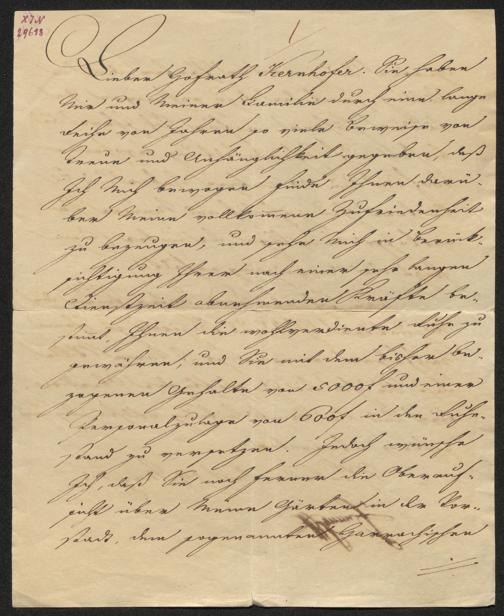 ZJN
29618
1
Lieber Hofrath Kernhofer. Sie haben
Mir und Meiner Familie durch eine lange
Reihe von Jahren so viele Beweise von
Treue und Anhänglichkeit gegeben, daß
Ich Mich bewogen finde, Ihnen darü-
ber Meine vollkommene Zufriedenheit
zu bezeugen, und sehe Mich in Berück-
sichtigung Ihrer nach einer sehr langen
Dienstzeit abnehmenden Kräfte be-
stimmt, Ihnen die wohlverdiente Ruhe zu
gewähren, und Sie mit dem bisher be-
zogenen Gehalte von 5000f und einer
Personalzulage von 600f in den Ruhe-
stand zu versetzen. Jedoch wünsche
Ich, daß Sie noch ferner die Oberauf-
sicht über Meine Gärten in der Vor-
stadt, dem sogenannten Harrachischen